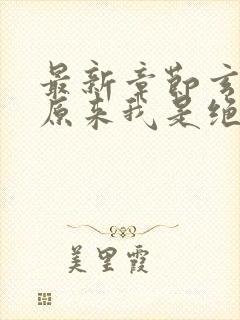 最新章节玄
原来我是绝
美里霞